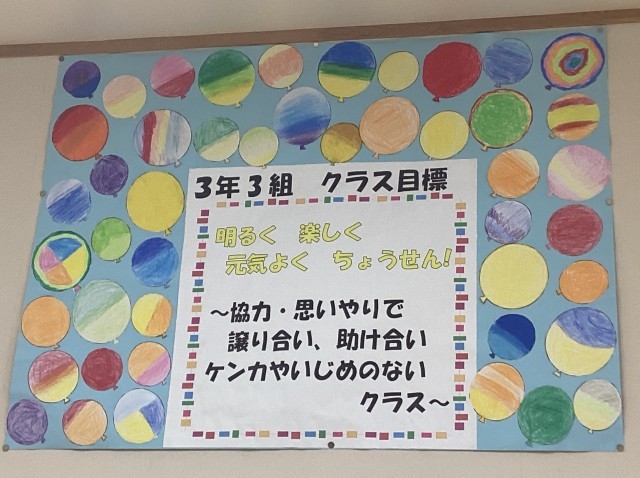 3年3組 クラス目標
明るく 楽しく
元気よく ちょうせん!
～協力・思いやりで
譲り合い、助け合い
ケンカやいじめのない
クラス～